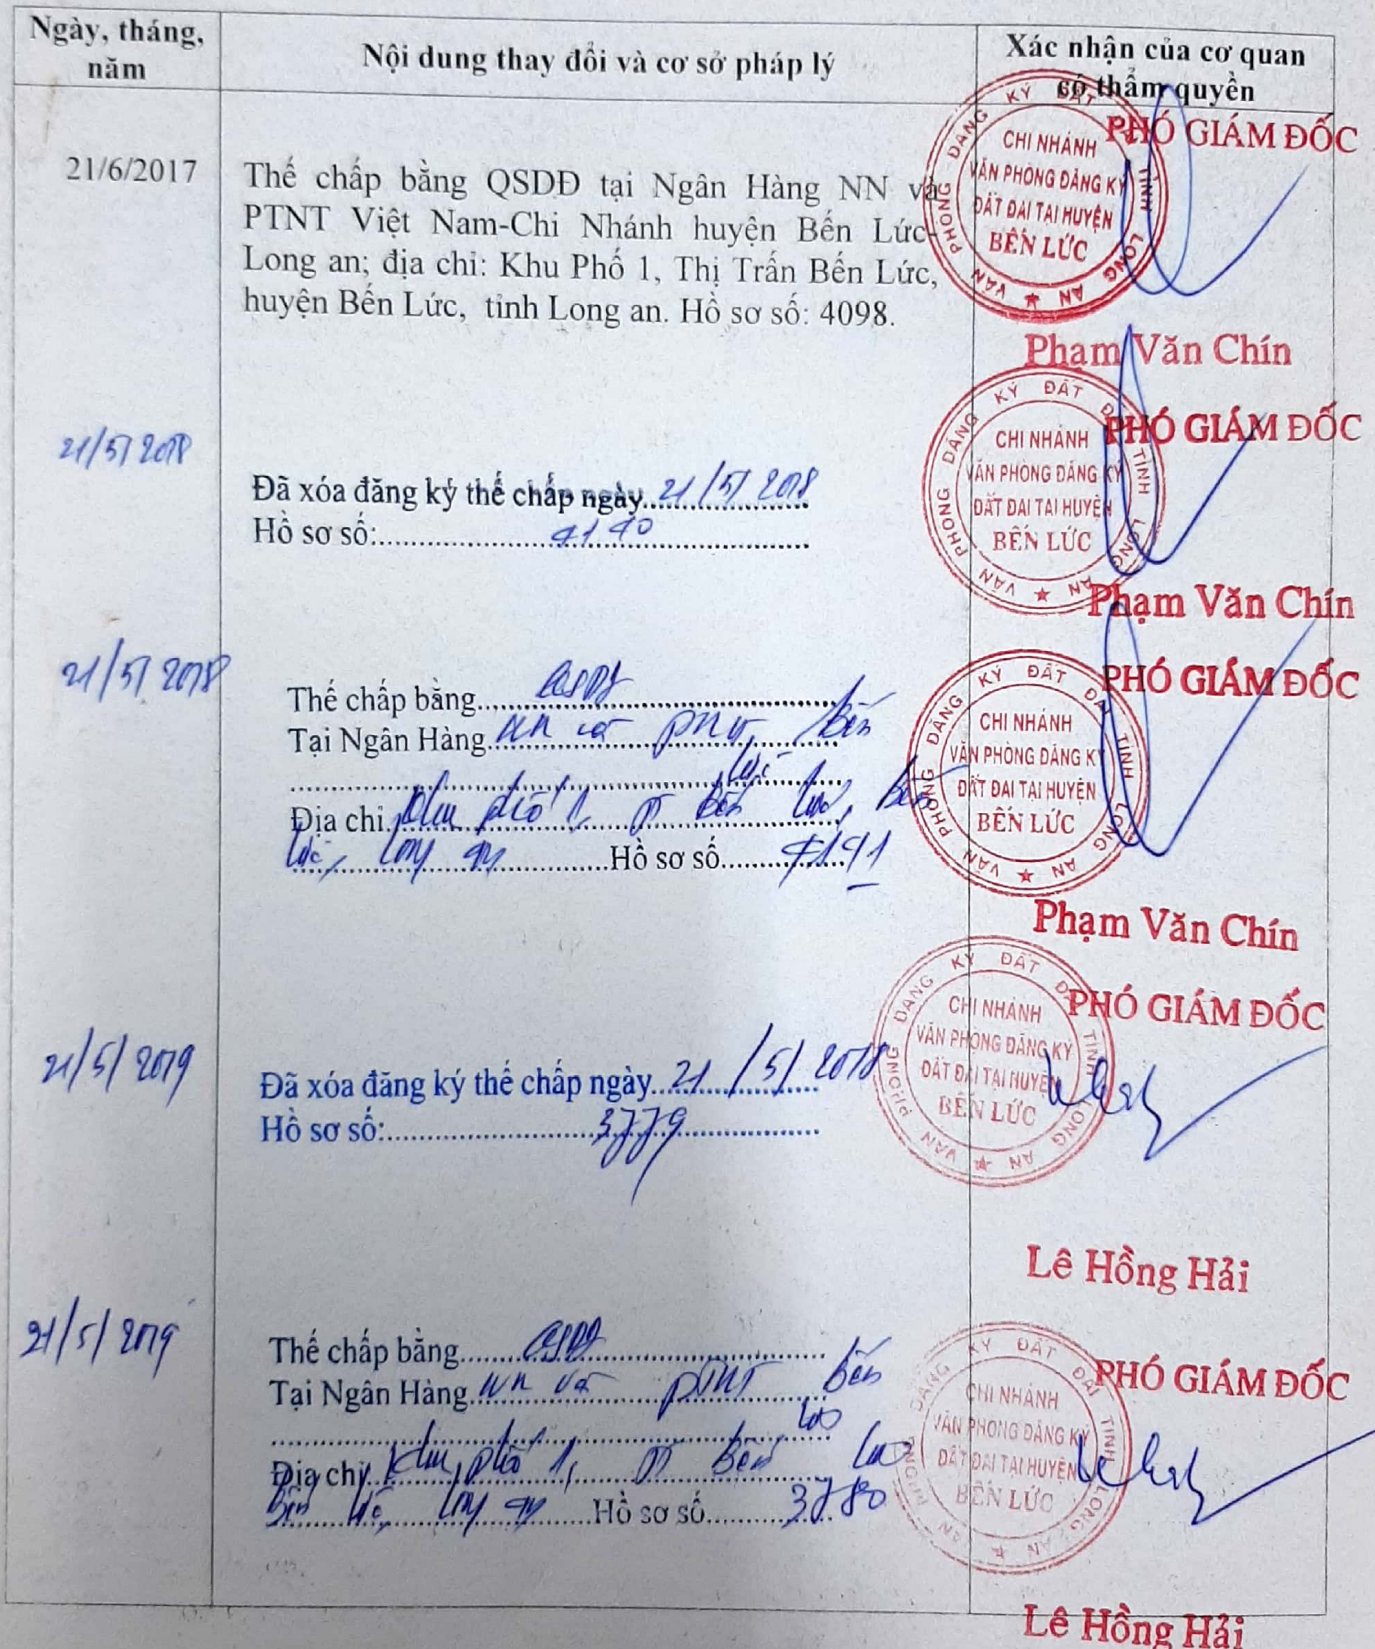 Ngày, tháng, năm
Nội dung thay đổi và cơ sở pháp lý
Xác nhận của cơ quan có thẩm quyền
21/6/2017
Thế chấp bằng QSDĐ tại Ngân Hàng NN và
PTNT Việt Nam-Chi Nhánh huyện Bến Lức-
Long an; địa chỉ: Khu Phố 1, Thị Trấn Bến Lức,
huyện Bến Lức, tỉnh Long an. Hồ sơ số: 4098.
PHÓ GIÁM ĐỐC
VĂN PHÒNG ĐĂNG KÝ ĐẤT ĐAI TỈNH LONG AN
CHI NHÁNH
VĂN PHÒNG ĐĂNG KÝ
ĐẤT ĐAI TẠI HUYỆN
BẾN LỨC
Phạm Văn Chín
21/5/2018
Đã xóa đăng ký thế chấp ngày 21/5/2018
Hồ sơ số:
PHÓ GIÁM ĐỐC
VĂN PHÒNG ĐĂNG KÝ ĐẤT ĐAI TỈNH LONG AN
CHI NHÁNH
VĂN PHÒNG ĐĂNG KÝ
ĐẤT ĐAI TẠI HUYỆN
BẾN LỨC
Phạm Văn Chín
21/5/2018
Thế chấp bằng QSDĐ
Tại Ngân Hàng NN và PTNT Bến
Lức
Địa chỉ Khu phố 1, TT Bến Lức, Bến
Lức, Long An Hồ sơ số
PHÓ GIÁM ĐỐC
VĂN PHÒNG ĐĂNG KÝ ĐẤT ĐAI TỈNH LONG AN
CHI NHÁNH
VĂN PHÒNG ĐĂNG KÝ
ĐẤT ĐAI TẠI HUYỆN
BẾN LỨC
Phạm Văn Chín
21/5/2019
Đã xóa đăng ký thế chấp ngày 21/5/2018
Hồ sơ số: 3779
PHÓ GIÁM ĐỐC
VĂN PHÒNG ĐĂNG KÝ ĐẤT ĐAI TỈNH LONG AN
CHI NHÁNH
VĂN PHÒNG ĐĂNG KÝ
ĐẤT ĐAI TẠI HUYỆN
BẾN LỨC
Lê Hồng Hải
21/5/2019
Thế chấp bằng QSDĐ
Tại Ngân Hàng NN và PTNT Bến
Lức
Địa chỉ Khu phố 1, TT Bến Lức
Bến Lức, Long An Hồ sơ số 3780
PHÓ GIÁM ĐỐC
VĂN PHÒNG ĐĂNG KÝ ĐẤT ĐAI TỈNH LONG AN
CHI NHÁNH
VĂN PHÒNG ĐĂNG KÝ
ĐẤT ĐAI TẠI HUYỆN
BẾN LỨC
Lê Hồng Hải